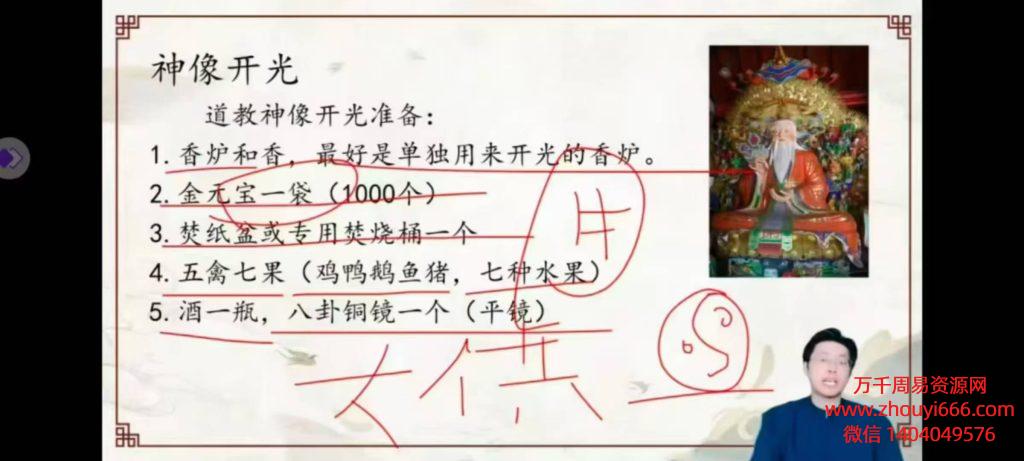 神像开光
道教神像开光准备：
1. 香炉和香，最好是单独用来开光的香炉。
2. 金元宝一袋（1000个）
3. 焚纸盆或专用焚烧桶一个
4. 五禽七果（鸡鸭鹅鱼猪，七种水果）
5. 酒一瓶，八卦铜镜一个（平镜）
万千周易资源网
www.zhouyi666.com
微信 1404049576